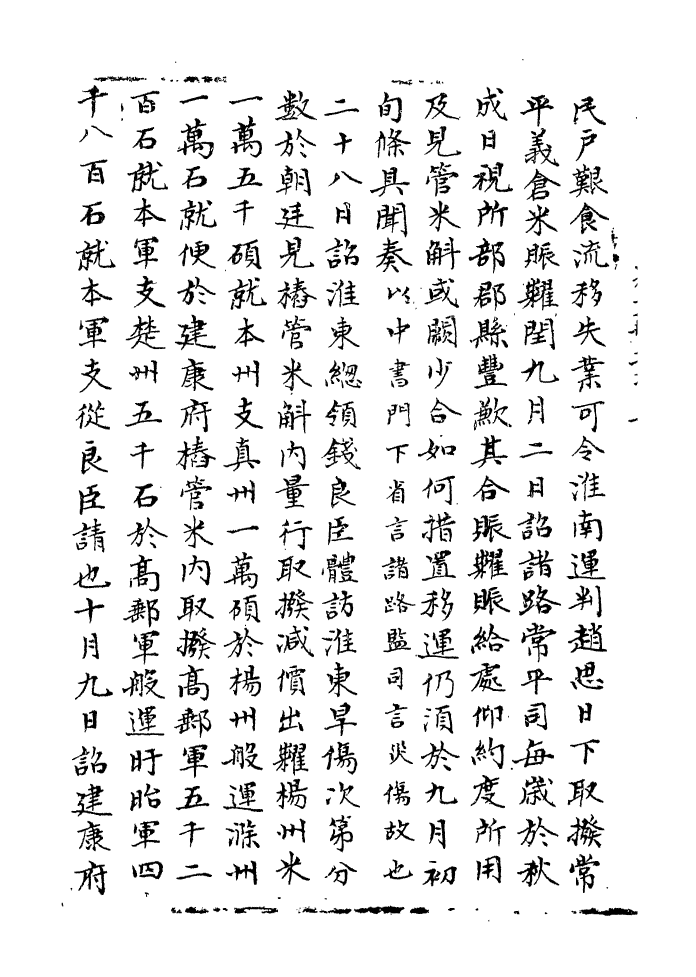 民戶艱食流移失業可令淮南運判趙思日下取撥常
平義倉米賑糶閏九月二日詔諸路常平司每歲於秋
成日視所部郡縣豐歉其合賑糶賑給處仰約度所用
及見管米斛或闕少合如何措置移運仍須於九月初
旬條具聞奏以中書門下省言諸路監司言災傷故也
二十八日詔淮東總領錢良臣體訪淮東旱傷次第分
數於朝廷見樁管米斛內量行取撥減價出糶楊州米
一萬五千碩就本州支真州一萬碩於楊州般運滁州
一萬石就便於建康府樁管米內取撥高郵軍五千二
百石就本軍支楚州五千石於高郵軍般運盱眙軍四
千八百石就本軍支從良臣請也十月九日詔建康府